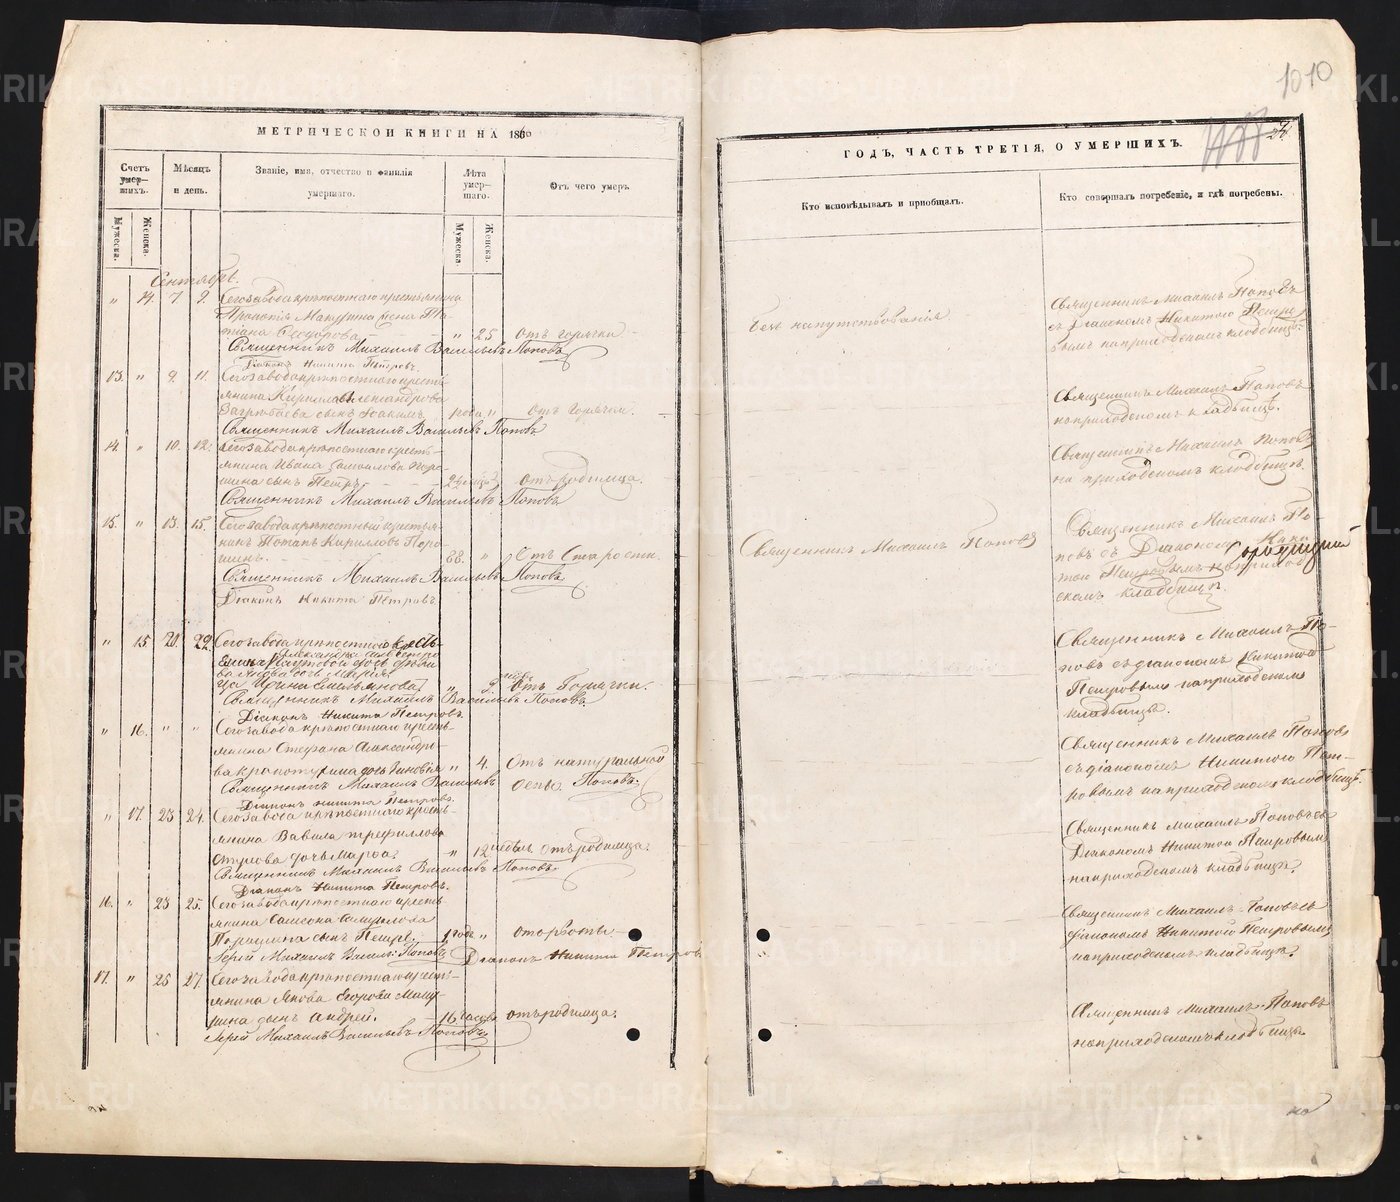 МЕТРИЧЕСКОЙ КНИГИ НА 1860
Счетъ умерших.
Мѣсяцъ и день.
Званіе, имя, отчество и фамилія умершаго.
Лѣта умершаго.
Отъ чего умеръ
Мужеска.
Женска.
Мужеска.
Женска.
Сентябрь.
" 14. 7 9. Сего завода крѣпостнаго крестьянина
Прокопія Макурина жена Та-
тіана Ѳеодорова " 25 отъ горячки
Священникъ Михаилъ Васильевъ Поповъ
Діаконъ Никита Петровъ.
13. " 9. 11. Сего завода крѣпостнаго кресть-
янина Кирилла Александрова
сынъ Іоакимъ 1 года " отъ горячки.
Священникъ Михаилъ Васильевъ Поповъ
14. " 10. 12. Сего завода крѣпостнаго кресть-
янина Ивана Самойлова Поро-
шина сынъ Петръ отъ родимца.
Священникъ Михаилъ Васильевъ Поповъ
15. " 13. 15. Сего завода крѣпостный крестья-
нинъ Потапъ Кирилловъ Поро-
шинъ. 88. " Отъ Старости.
Священникъ Михаилъ Васильевъ Поповъ
Діаконъ Никита Петровъ
" 15 20. 22. Сего завода крѣпостнаго кресть-
Ирина Емельянова " 9 отъ Горячки.
Священникъ Михаилъ Васильевъ Поповъ.
Діаконъ Никита Петровъ.
" 16. " " Сего завода крѣпостнаго кресть-
янина Стефана Александро-
ва дочь Зиновія " 4. Отъ натуральной
Священникъ Михаилъ Васильевъ Поповъ. оспы.
Діаконъ Никита Петровъ.
" 17. 23 24. Сего завода крѣпостнаго кресть-
янина Вавила Трефиллова
дочь Марѳа. " 12 недѣль отъ родимца.
Священникъ Михаилъ Васильевъ Поповъ
Діаконъ Никита Петровъ.
16. " 23 25. Сего завода крѣпостнаго кресть-
янина Самсона Самуилова
Порошина сынъ Петръ. 1 годъ "
Іерей Михаилъ Василь: Поповъ Діаконъ Никита Петровъ
17. " 25 27. Сего завода крѣпостнаго кресть-
янина Якова Егорова
сынъ Андрей. 16 часовъ отъ родимца.
Іерей Михаилъ Васильевъ Поповъ
1010
ГОДЪ, ЧАСТЬ ТРЕТІЯ, О УМЕРШИХЪ.
Кто исповѣдывалъ и пріобщалъ.
Кто совершалъ погребеніе, и гдѣ погребены.
Безъ напутствованія
Священникъ Михаилъ Поповъ
съ Діакономъ Никитою Петро-
вымъ на приходскомъ кладбищѣ.
Священникъ Михаилъ Поповъ
на приходскомъ кладбищѣ.
Священникъ Михаилъ Поповъ
на приходскомъ кладбищѣ.
Священникъ Михаилъ Поповъ
Священникъ Михаилъ По-
повъ съ Діакономъ Ники-
тою Петровымъ на приход-
скомъ кладбищѣ.
Священникъ Михаилъ По-
повъ съ діакономъ Никитою
Петровымъ на приходскомъ
кладбищѣ.
Священникъ Михаилъ Поповъ
съ діакономъ Никитою Пет-
ровымъ на приходскомъ кладбищѣ.
Священникъ Михаилъ Поповъ съ
Діакономъ Никитою Петровымъ
на приходскомъ кладбищѣ.
Священникъ Михаилъ Поповъ съ
Діакономъ Никитою Петровымъ
на приходскомъ кладбищѣ.
Священникъ Михаилъ Поповъ
на приходскомъ кладбищѣ
METRIKI.GASO-URAL.RU